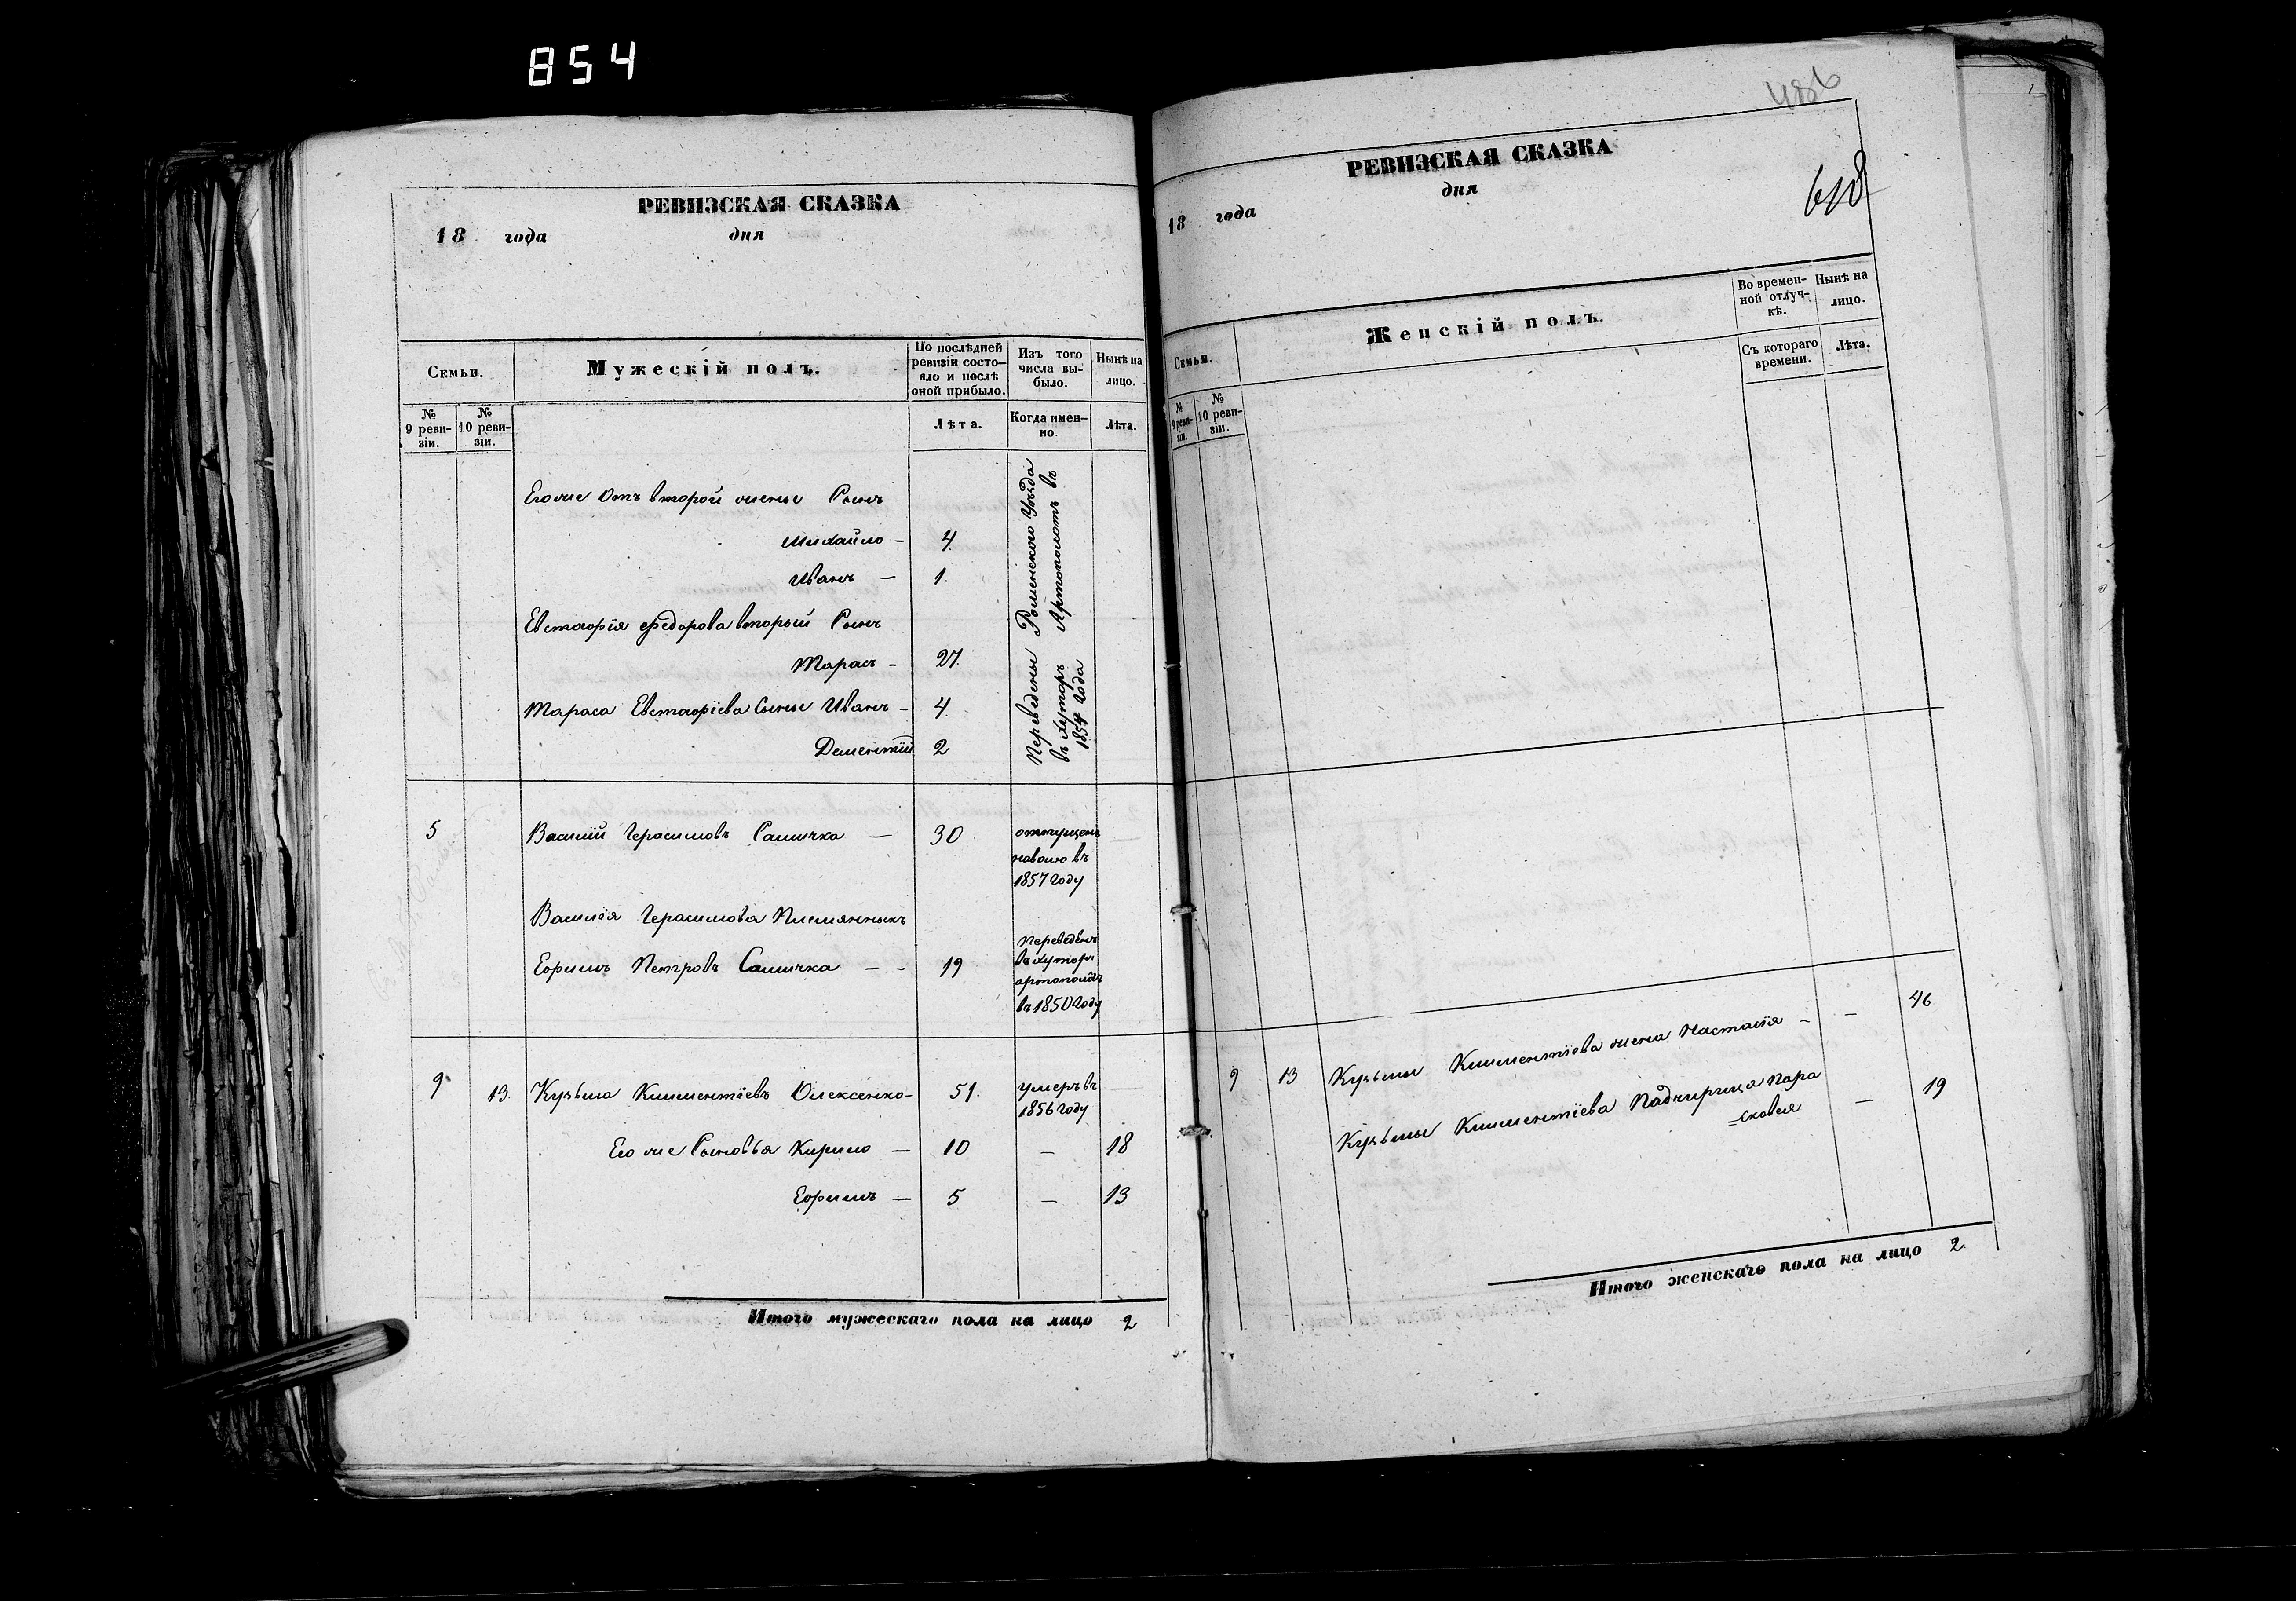 854
РЕВИЗСКАЯ СКАЗКА
18 года дня
Семьи.
Мужескій полъ.
По послѣдней ревизіи состояло и послѣ оной прибыло.
Изъ того числа выбыло.
Нынѣ на лицо.
№ 9 ревизіи.
№ 10 ревизіи.
Лѣта.
Когда именно.
Лѣта.
Его же Отъ второй жены Сынъ
Михайло - 4.
Иванъ - 1.
Евстафія Федорова вторый Сынъ
Тарасъ - 27.
Тараса Евстафіева Сыны Иванъ - 4.
Дементій 2
Переведены Роменского Уѣзда
въ Хуторъ Артополотъ въ
1854 года
5 Василій Герасимовъ Самичка — 30
отпущенъ
наволю въ
1857 году
Василія Герасимова Племянныкъ
Ефимъ Петровъ Самичка - - 19
переведенъ
въ хуторъ
артополотъ
въ 1850 году
9 13. Кузьма Климентіевъ Олексенко - 51.
умеръ въ
1856 году
Его же Сыновья Кирило — 10 — 18
Ефимъ — 5 — 13
Итого мужескаго пола на лицо 2
486
РЕВИЗСКАЯ СКАЗКА
18 года дня
618
Семьи.
Женскій полъ.
Во временной отлучкѣ.
Нынѣ на лицо.
№ 9 ревизіи.
№ 10 ревизіи.
Съ котораго времени.
Лѣта.
9 13 Кузьмы Климентіева жена Настасія - - 46
Кузьмы Климентіева Падчирица Пара
=сковія — 19
Итого женскаго пола на лицо 2.